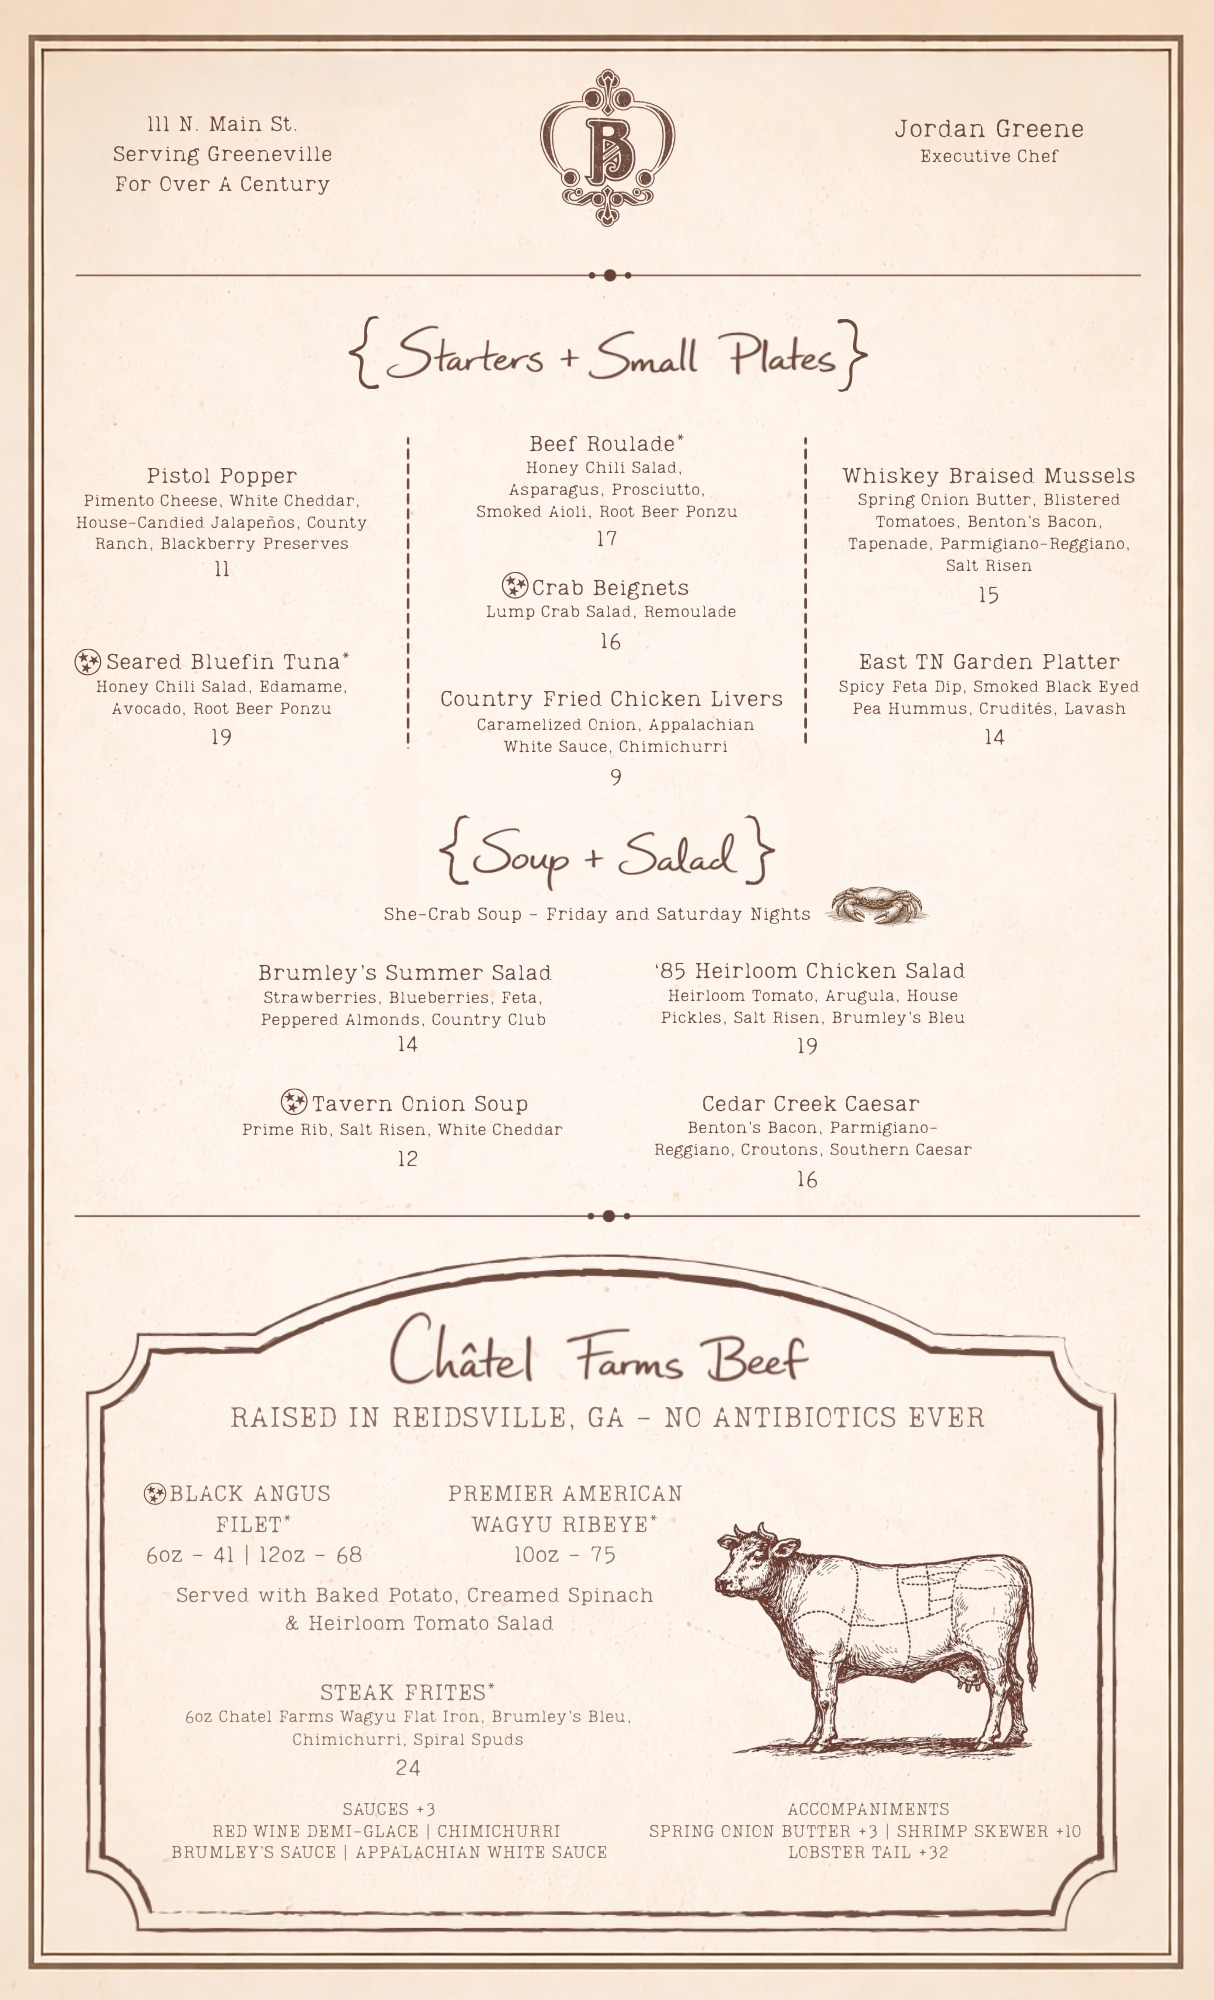 111 N. Main St.
Serving Greeneville
For Over A Century
B
Jordan Greene
Executive Chef
{ Starters + Small Plates }
Pistol Popper
Pimento Cheese, White Cheddar,
House-Candied Jalapeños, County
Ranch, Blackberry Preserves
11
Seared Bluefin Tuna*
Honey Chili Salad, Edamame,
Avocado, Root Beer Ponzu
19
Beef Roulade*
Honey Chili Salad,
Asparagus, Prosciutto,
Smoked Aioli, Root Beer Ponzu
17
Crab Beignets
Lump Crab Salad, Remoulade
16
Country Fried Chicken Livers
Caramelized Onion, Appalachian
White Sauce, Chimichurri
9
Whiskey Braised Mussels
Spring Onion Butter, Blistered
Tomatoes, Benton's Bacon,
Tapenade, Parmigiano-Reggiano,
Salt Risen
15
East TN Garden Platter
Spicy Feta Dip, Smoked Black Eyed
Pea Hummus, Crudités, Lavash
14
{ Soup + Salad }
She-Crab Soup - Friday and Saturday Nights
Brumley's Summer Salad
Strawberries, Blueberries, Feta,
Peppered Almonds, Country Club
14
'85 Heirloom Chicken Salad
Heirloom Tomato, Arugula, House
Pickles, Salt Risen, Brumley's Bleu
19
Tavern Onion Soup
Prime Rib, Salt Risen, White Cheddar
12
Cedar Creek Caesar
Benton's Bacon, Parmigiano-
Reggiano, Croutons, Southern Caesar
16
Châtel Farms Beef
RAISED IN REIDSVILLE, GA - NO ANTIBIOTICS EVER
BLACK ANGUS
FILET*
6oz - 41 | 12oz - 68
PREMIER AMERICAN
WAGYU RIBEYE*
10oz - 75
Served with Baked Potato, Creamed Spinach
& Heirloom Tomato Salad
STEAK FRITES*
6oz Chatel Farms Wagyu Flat Iron, Brumley's Bleu,
Chimichurri, Spiral Spuds
24
SAUCES +3
RED WINE DEMI-GLACE | CHIMICHURRI
BRUMLEY'S SAUCE | APPALACHIAN WHITE SAUCE
ACCOMPANIMENTS
SPRING ONION BUTTER +3 | SHRIMP SKEWER +10
LOBSTER TAIL +32